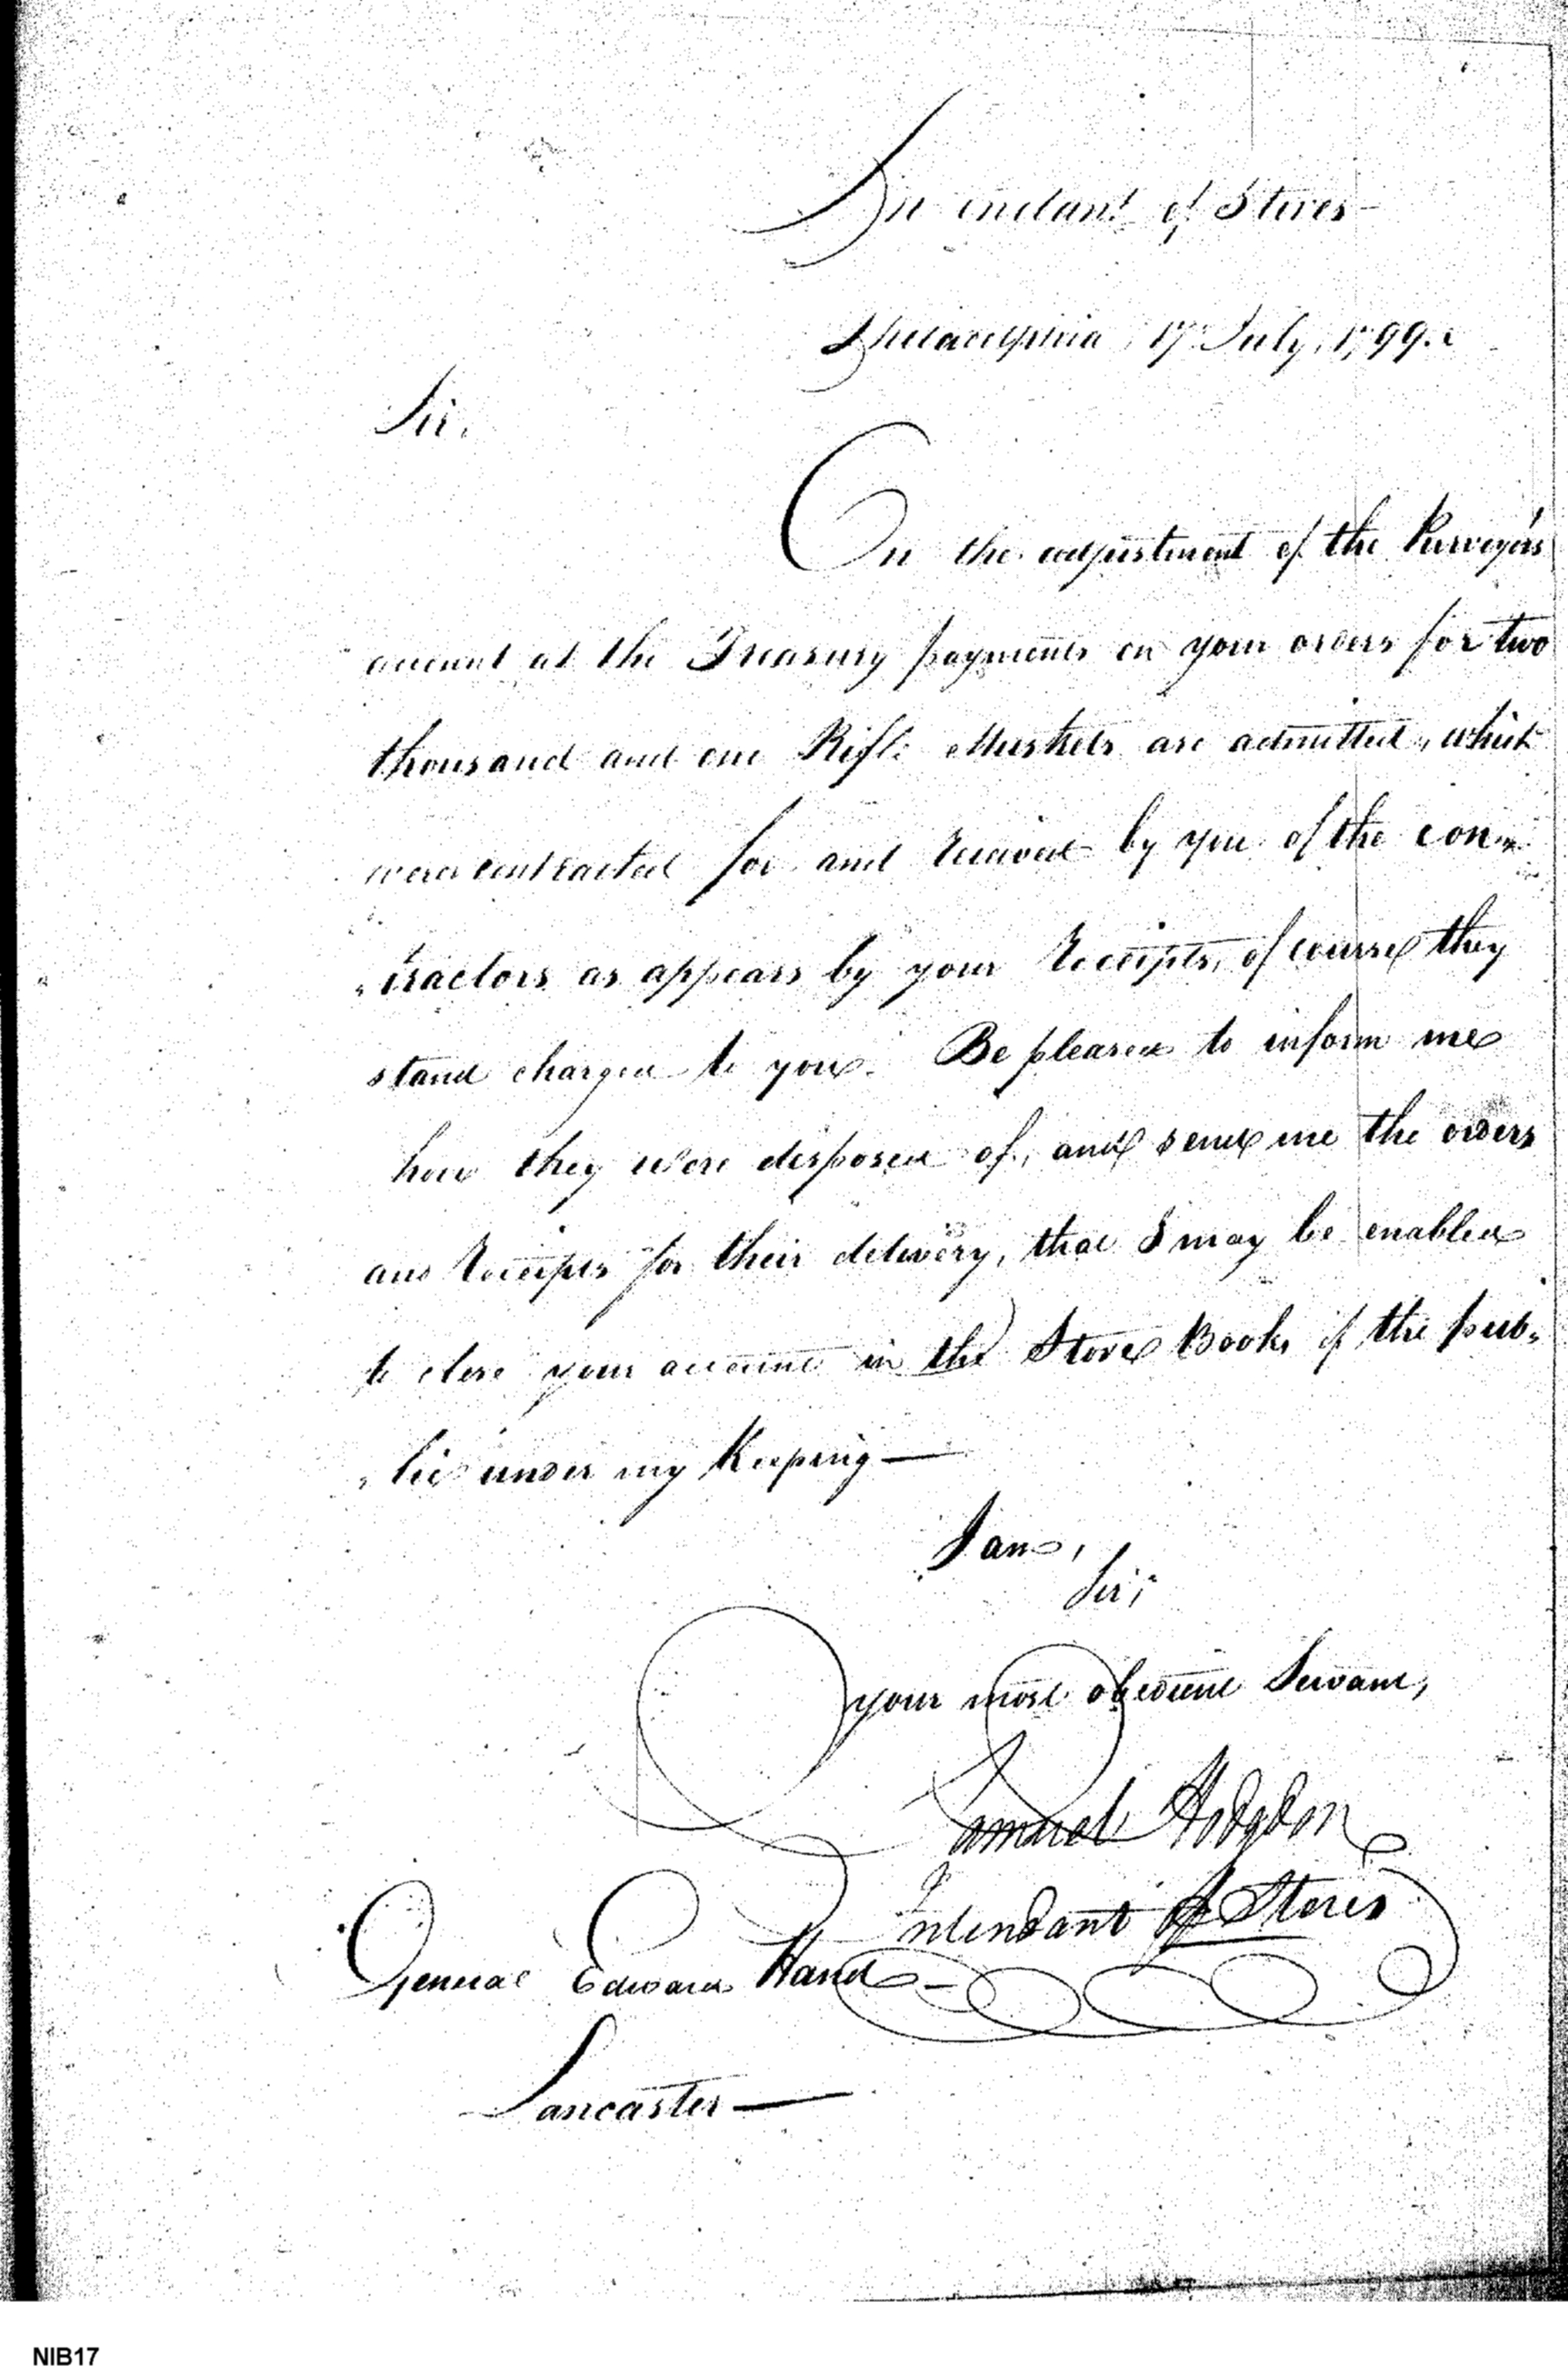 Intendant of Stores
Philadelphia, 17 July, 1799.
Sir.
On the adjustment of the Purveyors
account at the Treasury payments on your orders for two
thousand and one Rifle Muskets are admitted, which
were contracted for and received by you of the con=
"tractors as appears by your receipts, of course they
stand charged to you. Be pleased to inform me
how they were disposed of, and send me the orders
and receipts for their delivery, that I may be enabled
to close your account in the Store Books of the pub=
"lic under my Keeping—
I am,
Sir,
your most obedient Servant,
Samuel Hodgdon
Intendant of Stores
General Edward Hand—
Lancaster—
NIB17